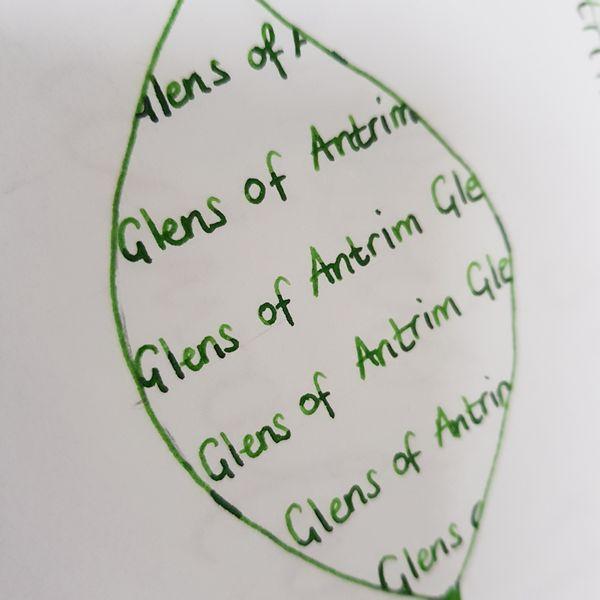 Glens of A
Glens of Antrim
Glens of Antrim Gle
Glens of Antrim Gle
Glens of Antrim
Glens o